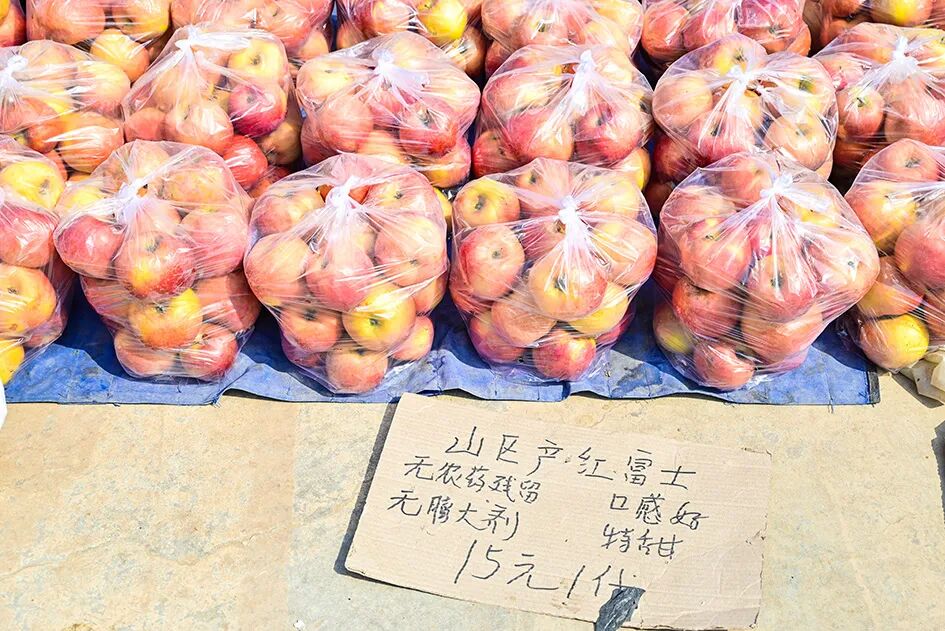 山区产红富士
无农药残留
无膨大剂
口感好
特甜
15元1代